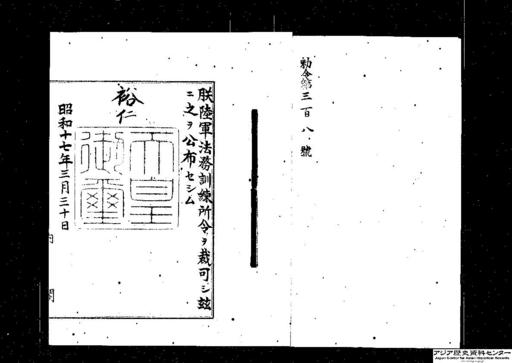 勅令第三百八號
朕陸軍法務訓練所令ヲ裁可シ玆
ニ之ヲ公布セシム
裕仁
天皇御璽
昭和十七年三月三十日
内閣
アジア歴史資料センター
Japan Center for Asian Historical Records